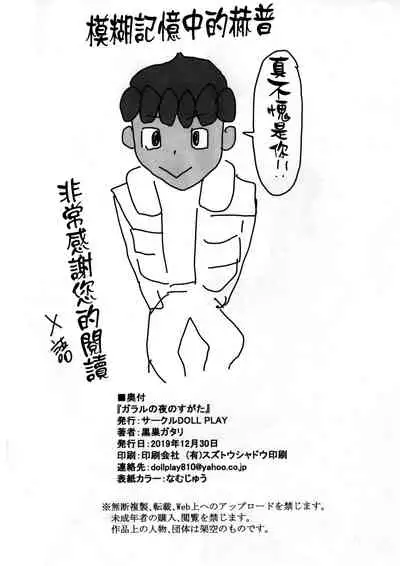 模糊記憶中的赫普
真不愧是你!!
非常感謝您的閱讀
■奥付
『ガラルの夜のすがた』
発行：サークルDOLL PLAY
著者：黒巣ガタリ
発行日：2019年12月30日
印刷：印刷会社 (有)スズトウシャドウ印刷
連絡先：dollplay810@yahoo.co.jp
表紙カラー：なむじゅう
※無断複製、転載、Web上へのアップロードを禁じます。
未成年者の購入、閲覧を禁じます。
作品上の人物、団体は架空のものです。